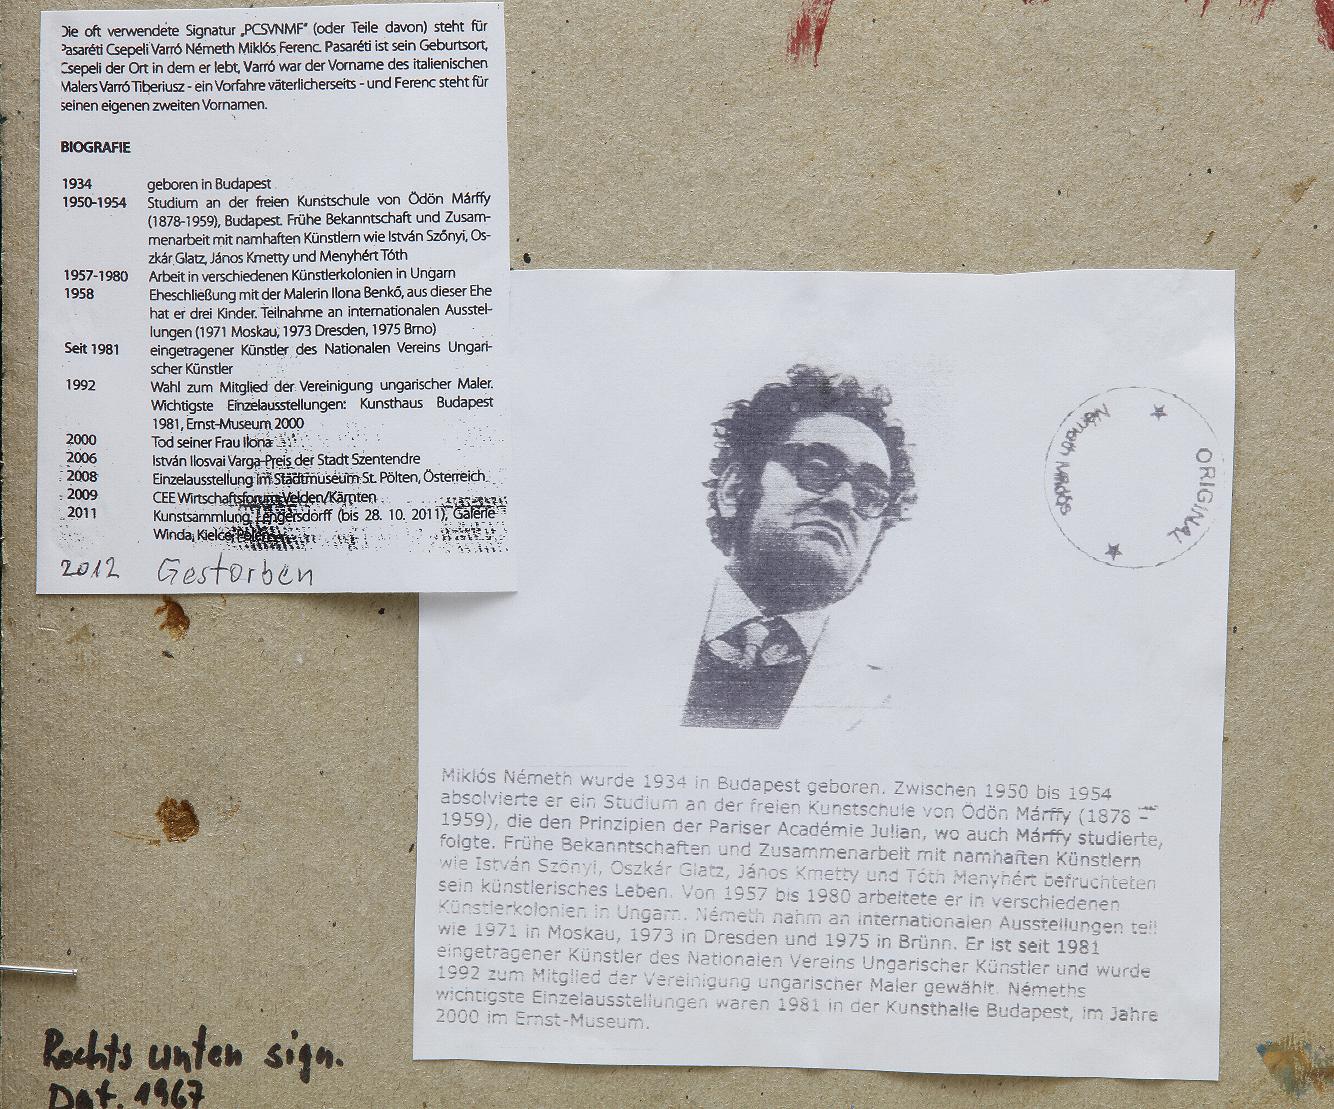 Die oft verwendete Signatur „PCSVNMF“ (oder Teile davon) steht für
Pasaréti Csepeli Varró Németh Miklós Ferenc. Pasaréti ist sein Geburtsort,
Csepeli der Ort in dem er lebt, Varró war der Vorname des italienischen
Malers Varró Tiberiusz - ein Vorfahre väterlicherseits - und Ferenc steht für
seinen eigenen zweiten Vornamen.
BIOGRAFIE
1934 geboren in Budapest
1950-1954 Studium an der freien Kunstschule von Ödön Márffy
(1878-1959), Budapest. Frühe Bekanntschaft und Zusam-
menarbeit mit namhaften Künstlern wie István Szőnyi, Os-
zkár Glatz, János Kmetty und Menyhért Tóth
1957-1980 Arbeit in verschiedenen Künstlerkolonien in Ungarn
1958 Eheschließung mit der Malerin Ilona Benkő, aus dieser Ehe
hat er drei Kinder. Teilnahme an internationalen Ausstel-
lungen (1971 Moskau, 1973 Dresden, 1975 Brno)
Seit 1981 eingetragener Künstler des Nationalen Vereins Ungari-
scher Künstler
1992 Wahl zum Mitglied der Vereinigung ungarischer Maler.
Wichtigste Einzelausstellungen: Kunsthaus Budapest
1981, Ernst-Museum 2000
2000 Tod seiner Frau Ilona
2006 István Ilosvai Varga-Preis der Stadt Szentendre
2008 Einzelausstellung im Stadtmuseum St. Pölten, Österreich
2009 CEE Wirtschaftsforum Velden/Kärnten
2011 Kunstsammlung Lengersdorff (bis 28. 10. 2011), Galerie
Winda, Kielce, Polen
2012 Gestorben
ORIGINAL
Németh Miklós
Miklós Németh wurde 1934 in Budapest geboren. Zwischen 1950 bis 1954
absolvierte er ein Studium an der freien Kunstschule von Ödön Márffy (1878 –
1959), die den Prinzipien der Pariser Académie Julian, wo auch Márffy studierte,
folgte. Frühe Bekanntschaften und Zusammenarbeit mit namhaften Künstlern
wie István Szőnyi, Oszkár Glatz, János Kmetty und Tóth Menyhért befruchteten
sein künstlerisches Leben. Von 1957 bis 1980 arbeitete er in verschiedenen
Künstlerkolonien in Ungarn. Németh nahm an internationalen Ausstellungen teil
wie 1971 in Moskau, 1973 in Dresden und 1975 in Brünn. Er ist seit 1981
eingetragener Künstler des Nationalen Vereins Ungarischer Künstler und wurde
1992 zum Mitglied der Vereinigung ungarischer Maler gewählt. Némeths
wichtigste Einzelausstellungen waren 1981 in der Kunsthalle Budapest, im Jahre
2000 im Ernst-Museum.
Rechts unten sign.
Dat. 1967